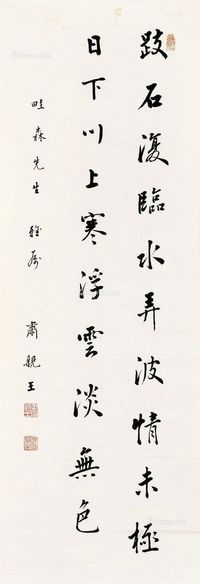 跂石復臨水弄波情未極
日下川上寒浮雲淡無色
畦森先生 雅属
肅親王